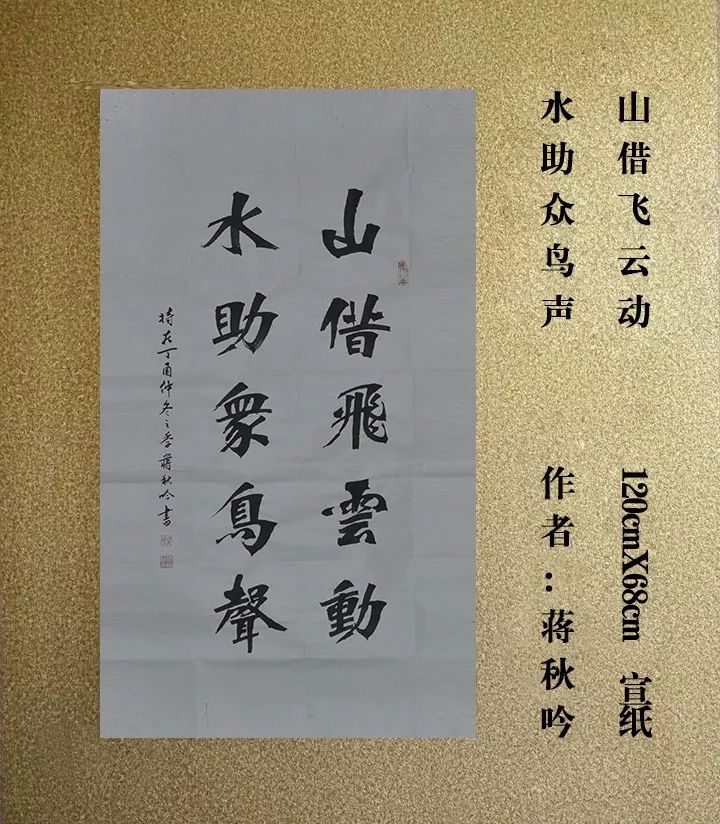 山借飛雲動
水助衆鳥聲
時在丁酉仲冬之季蔣秋吟書
山借飞云动
水助众鸟声
120cmX68cm 宣纸
作者：蒋秋吟